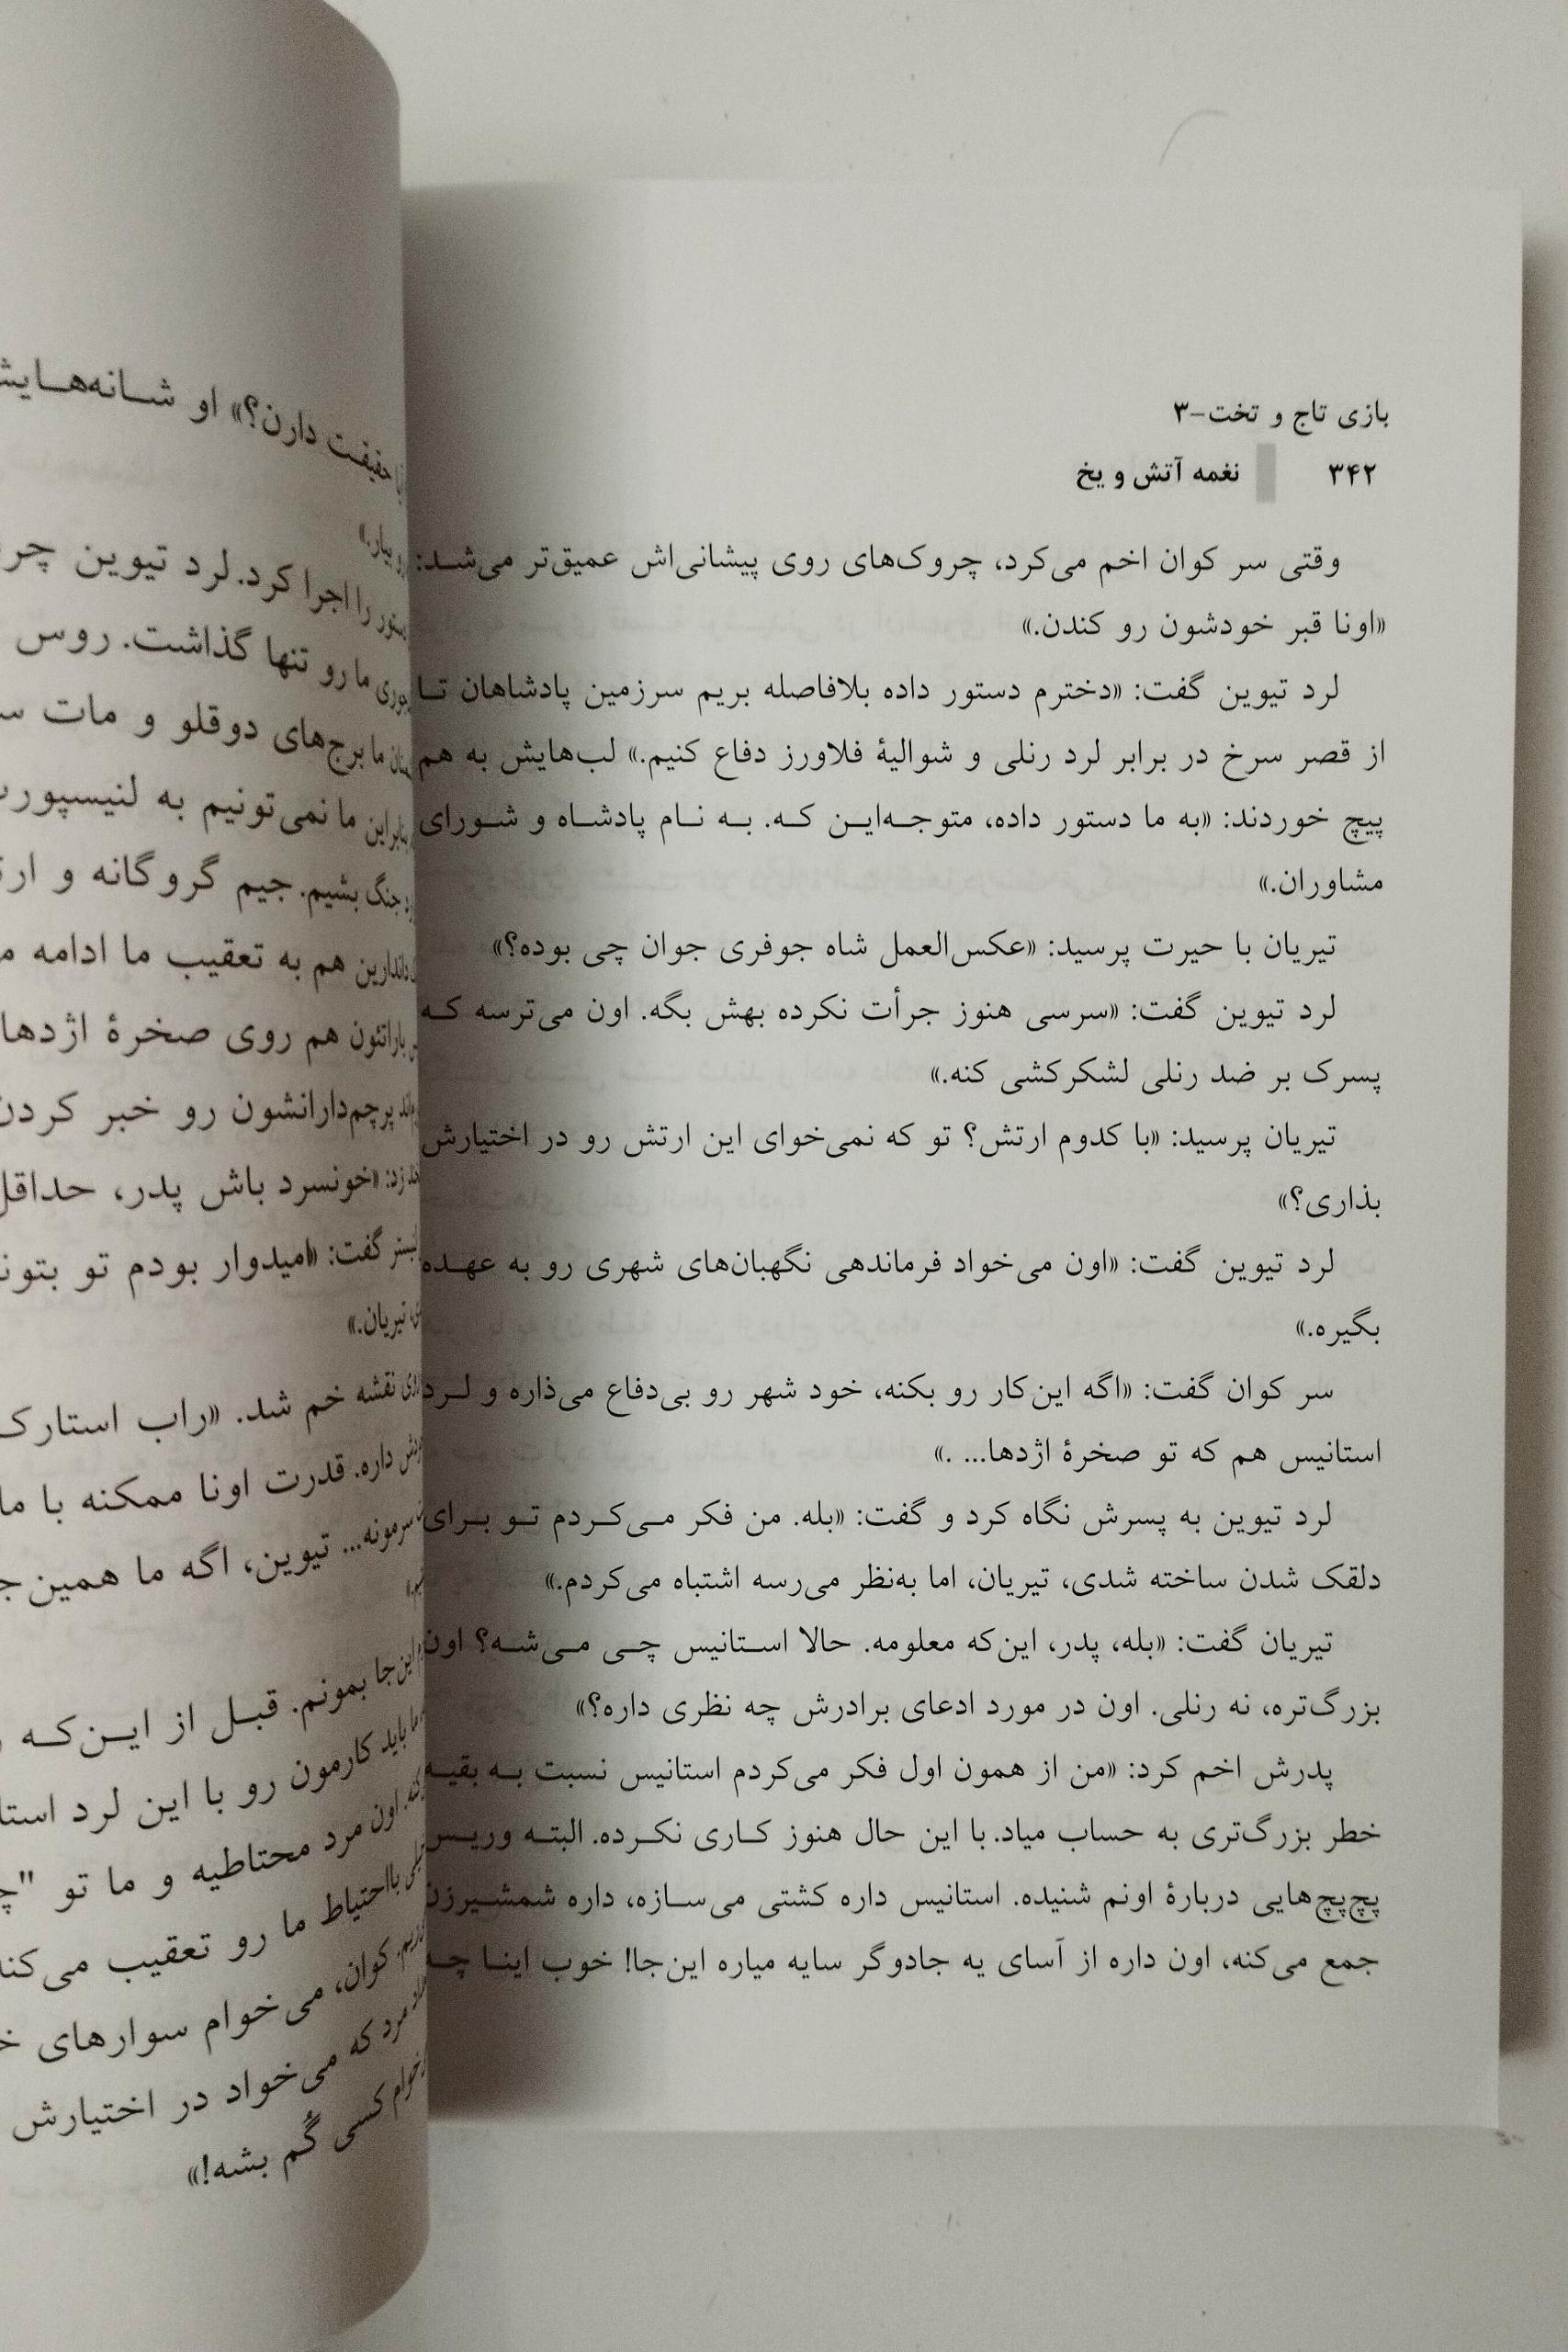 بازی تاج و تخت-۳
۳۴۲ نغمه آتش و یخ
وقتی سر کوان اخم می‌کرد، چروک‌های روی پیشانی‌اش عمیق‌تر می‌شد:
«اونا قبر خودشون رو کندن.»
لرد تیوین گفت: «دخترم دستور داده بلافاصله بریم سرزمین پادشاهان تا
از قصر سرخ در برابر لرد رنلی و شوالیهٔ فلاورز دفاع کنیم.» لب‌هایش به هم
پیچ خوردند: «به ما دستور داده، متوجه‌این که. به نام پادشاه و شورای
مشاوران.»
تیریان با حیرت پرسید: «عکس‌العمل شاه جوفری جوان چی بوده؟»
لرد تیوین گفت: «سرسی هنوز جرأت نکرده بهش بگه. اون می‌ترسه که
پسرک بر ضد رنلی لشکرکشی کنه.»
تیریان پرسید: «با کدوم ارتش؟ تو که نمی‌خوای این ارتش رو در اختیارش
بذاری؟»
لرد تیوین گفت: «اون می‌خواد فرماندهی نگهبان‌های شهری رو به عهده
بگیره.»
سر کوان گفت: «اگه این‌کار رو بکنه، خود شهر رو بی‌دفاع می‌ذاره و لرد
استانیس هم که تو صخرهٔ اژدها... .»
لرد تیوین به پسرش نگاه کرد و گفت: «بله. من فکر می‌کردم تو برای
دلقک شدن ساخته شدی، تیریان، اما به‌نظر می‌رسه اشتباه می‌کردم.»
تیریان گفت: «بله، پدر، این‌که معلومه. حالا استانیس چی می‌شه؟ اون
بزرگ‌تره، نه رنلی. اون در مورد ادعای برادرش چه نظری داره؟»
پدرش اخم کرد: «من از همون اول فکر می‌کردم استانیس نسبت به بقیه
خطر بزرگ‌تری به حساب میاد. با این حال هنوز کاری نکرده. البته وریس
پچ‌پچ‌هایی دربارهٔ اونم شنیده. استانیس داره کشتی می‌سازه، داره شمشیرزن
جمع می‌کنه، اون داره از آسای یه جادوگر سایه میاره این‌جا! خوب اینا چه
حقیقت دارن؟» او شانه‌هایش
را اجرا کرد. لرد تیوین
ما رو تنها گذاشت. روس
ما برج‌های دوقلو و مات
ما نمی‌تونیم به
جنگ بشیم. جیم گروگانه و
هم به تعقیب ما ادامه
هم روی صخرهٔ اژدها
پرچم‌دارانشون رو خبر
زد: «خونسرد باش پدر، حداقل
گفت: «امیدوار بودم تو
تیریان.»
نقشه خم شد. «راب استارک
داره. قدرت اونا ممکنه با
تیوین، اگه ما همین
این‌جا بمونم. قبل از این‌که
باید کارمون رو با این لرد
اون مرد محتاطیه و ما تو
بااحتیاط ما رو تعقیب
کوان، می‌خوام سوارهای
مرد که می‌خواد در اختیارش
کسی گُم بشه!»